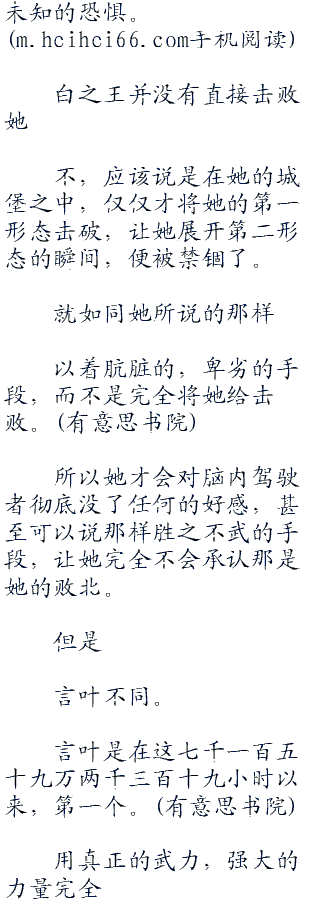 未知的恐惧。
(m.hcihci66.com手机阅读)
白之王并没有直接击败
她
不，应该说是在她的城
堡之中，仅仅才将她的第一
形态击破，让她展开第二形
态的瞬间，便被禁锢了。
就如同她所说的那样
以着肮脏的，卑劣的手
段，而不是完全将她给击
败。(有意思书院)
所以她才会对脑内驾驶
者彻底没了任何的好感，甚
至可以说那样胜之不武的手
段，让她完全不会承认那是
她的败北。
但是
言叶不同。
言叶是在这七千一百五
十九万两千三百十九小时以
来，第一个。(有意思书院)
用真正的武力，强大的
力量完全